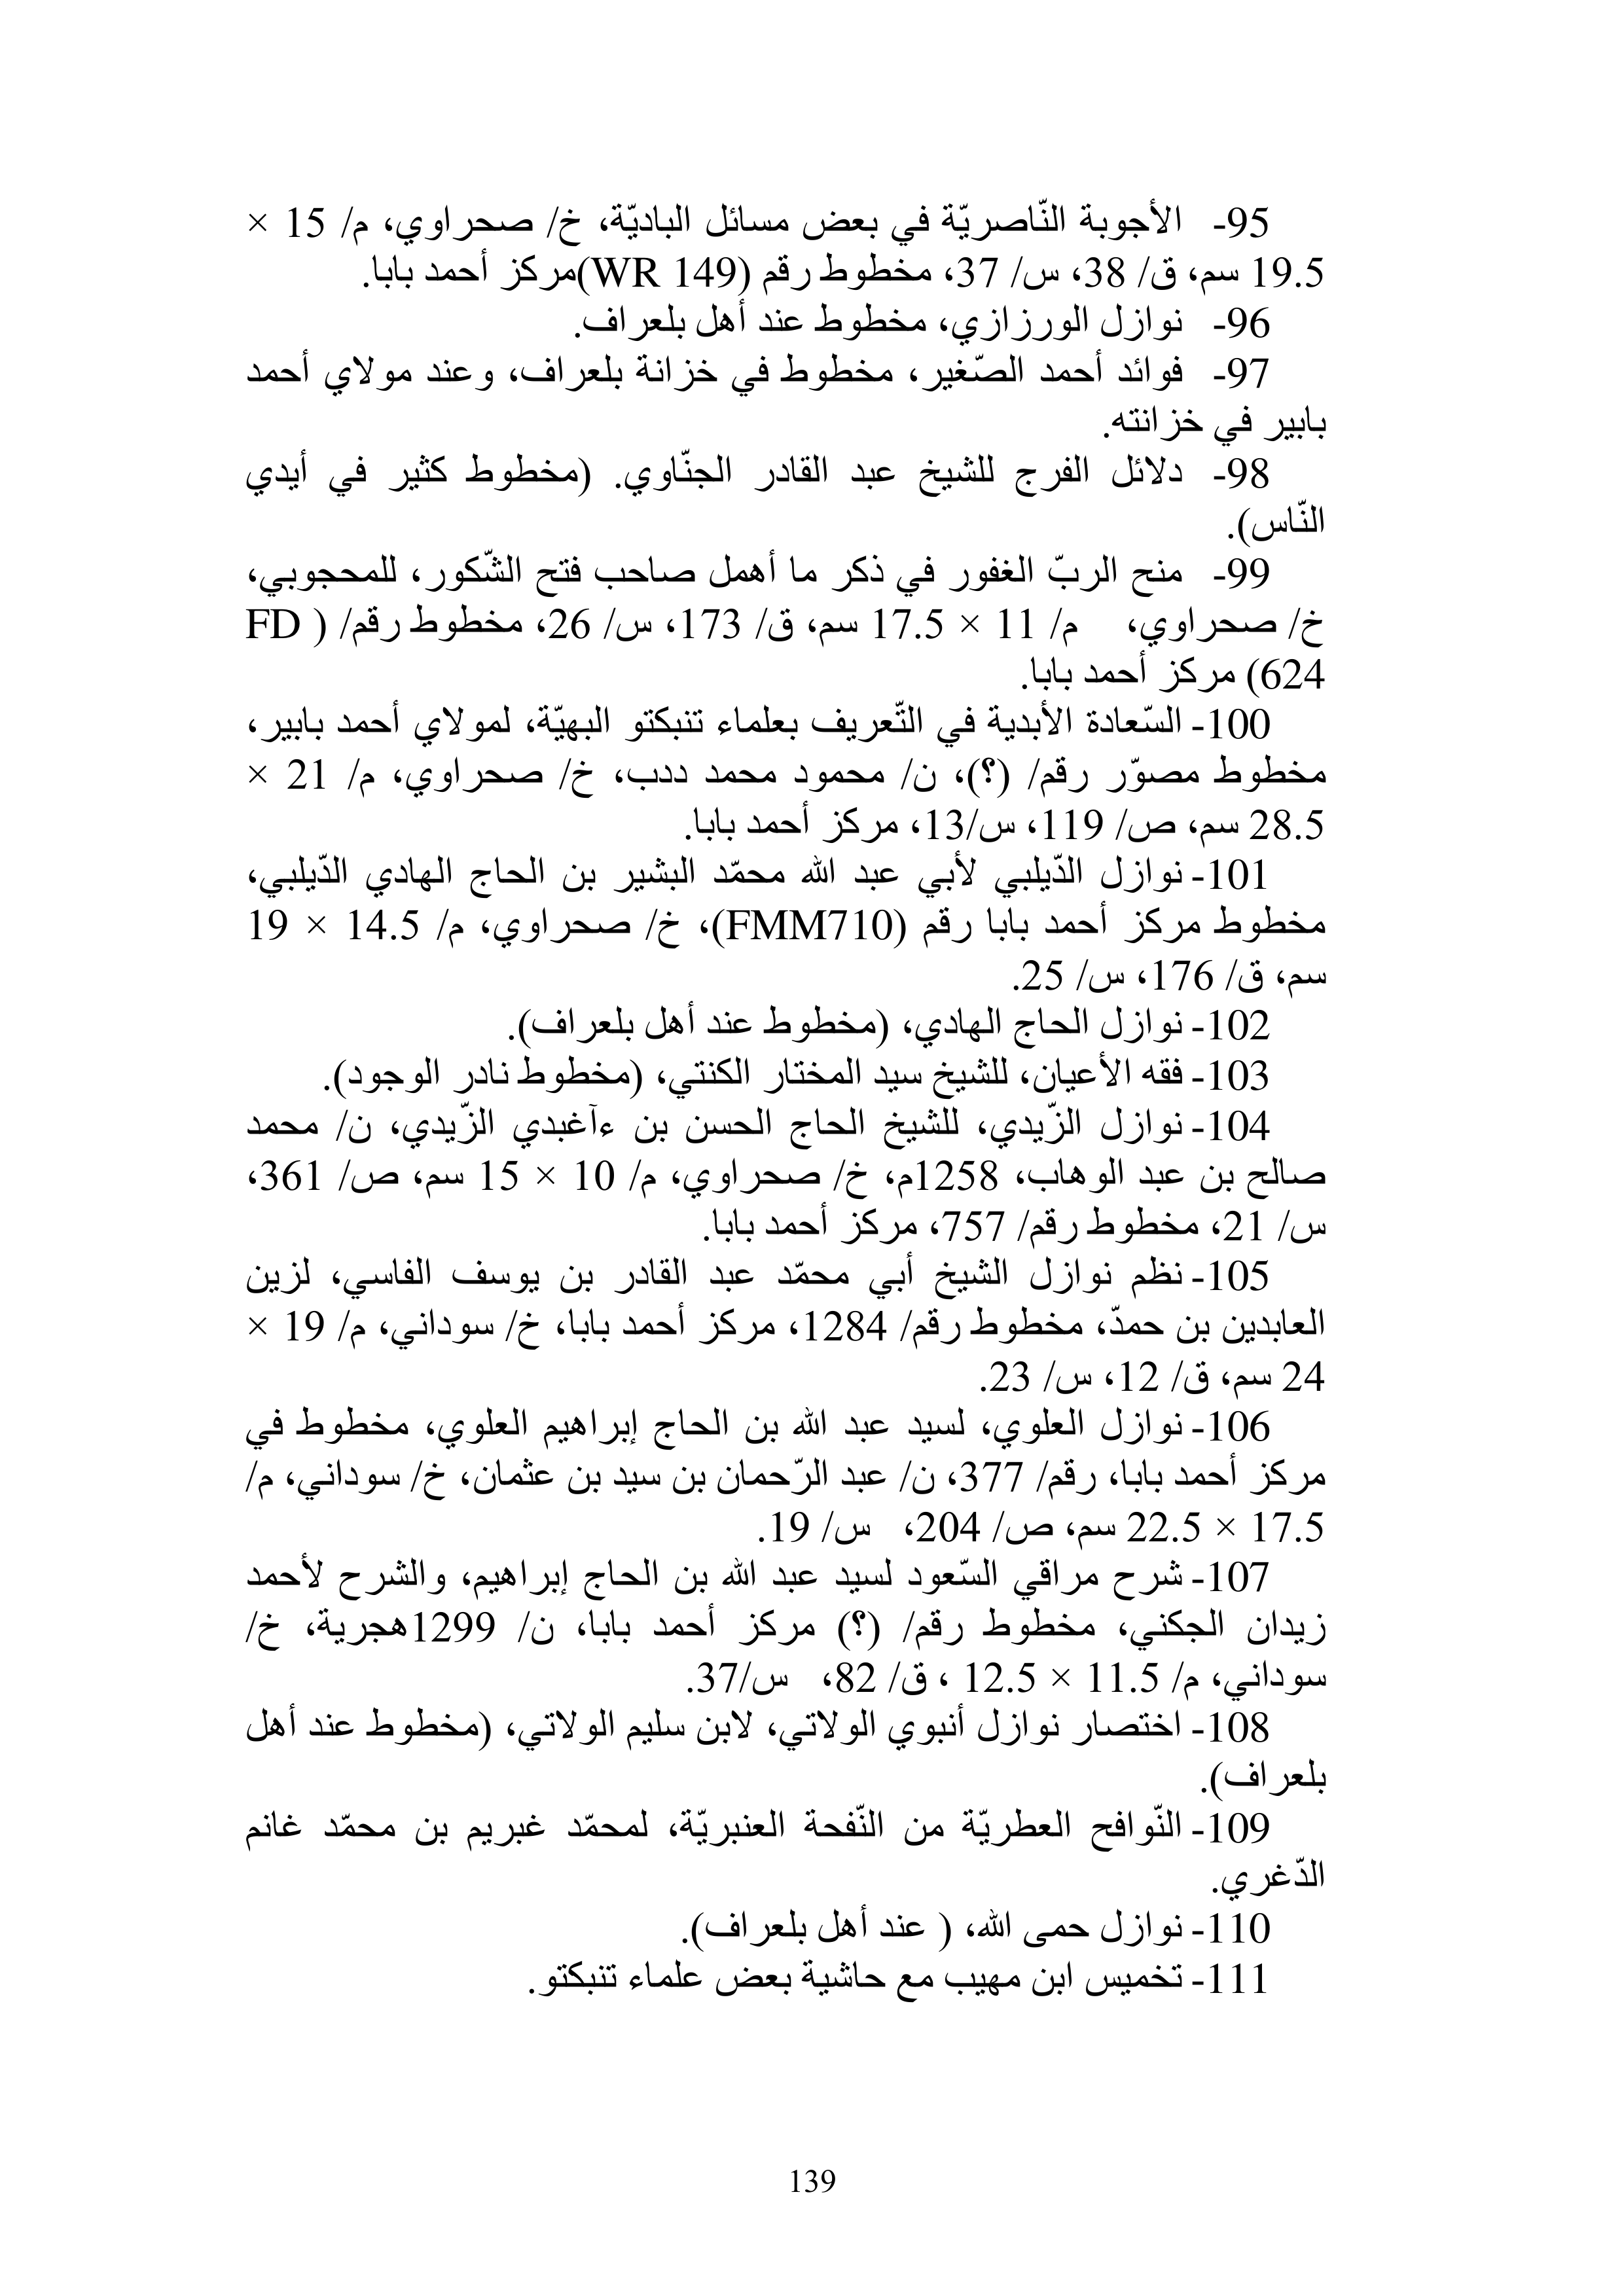 95- الأجوبة النّاصريّة في بعض مسائل الباديّة، خ/ صحراوي، م/ 15 ×
19.5 سم، ق/ 38، س/ 37، مخطوط رقم (WR 149)مركز أحمد بابا.
96- نوازل الورزازي، مخطوط عند أهل بلعراف.
97- فوائد أحمد الصّغير، مخطوط في خزانة بلعراف، وعند مولاي أحمد
بابير في خزانته.
98- دلائل الفرج للشيخ عبد القادر الجنّاوي. (مخطوط كثير في أيدي
النّاس).
99- منح الربّ الغفور في ذكر ما أهمل صاحب فتح الشّكور، للمحجوبي،
خ/ صحراوي، م/ 11 × 17.5 سم، ق/ 173، س/ 26، مخطوط رقم/ ( FD
624) مركز أحمد بابا.
100- السّعادة الأبدية في التّعريف بعلماء تنبكتو البهيّة، لمولاي أحمد بابير،
مخطوط مصوّر رقم/ (؟)، ن/ محمود محمد ددب، خ/ صحراوي، م/ 21 ×
28.5 سم، ص/ 119، س/13، مركز أحمد بابا.
101- نوازل الدّيلبي لأبي عبد الله محمّد البشير بن الحاج الهادي الدّيلبي،
مخطوط مركز أحمد بابا رقم (FMM710)، خ/ صحراوي، م/ 14.5 × 19
سم، ق/ 176، س/ 25.
102- نوازل الحاج الهادي، (مخطوط عند أهل بلعراف).
103- فقه الأعيان، للشيخ سيد المختار الكنتي، (مخطوط نادر الوجود).
104- نوازل الزّيدي، للشيخ الحاج الحسن بن ءآغبدي الزّيدي، ن/ محمد
صالح بن عبد الوهاب، 1258م، خ/ صحراوي، م/ 10 × 15 سم، ص/ 361،
س/ 21، مخطوط رقم/ 757، مركز أحمد بابا.
105- نظم نوازل الشيخ أبي محمّد عبد القادر بن يوسف الفاسي، لزين
العابدين بن حمدّ، مخطوط رقم/ 1284، مركز أحمد بابا، خ/ سوداني، م/ 19 ×
24 سم، ق/ 12، س/ 23.
106- نوازل العلوي، لسيد عبد الله بن الحاج إبراهيم العلوي، مخطوط في
مركز أحمد بابا، رقم/ 377، ن/ عبد الرّحمان بن سيد بن عثمان، خ/ سوداني، م/
17.5 × 22.5 سم، ص/ 204، س/ 19.
107- شرح مراقي السّعود لسيد عبد الله بن الحاج إبراهيم، والشرح لأحمد
زيدان الجكني، مخطوط رقم/ (؟) مركز أحمد بابا، ن/ 1299هجرية، خ/
سوداني، م/ 11.5 × 12.5 ، ق/ 82، س/37.
108- اختصار نوازل أنبوي الولاتي، لابن سليم الولاتي، (مخطوط عند أهل
بلعراف).
109- النّوافح العطريّة من النّفحة العنبريّة، لمحمّد غبريم بن محمّد غانم
الدّغري.
110- نوازل حمى الله، ( عند أهل بلعراف).
111- تخميس ابن مهيب مع حاشية بعض علماء تنبكتو.
139